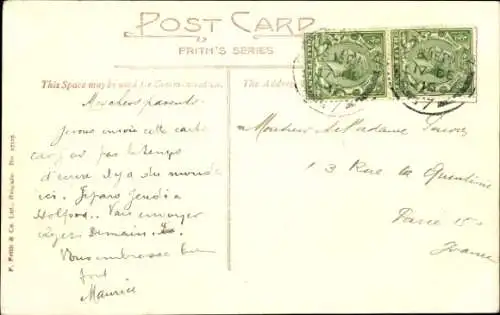 POST CARD
FRITH'S SERIES
This Space may be used for Communication.
The Address
Mes chers parents.
Je vous envoie cette carte
car j'ai pas le temps
d'écrire il y a du monde
ici. Je pars jeudi a
Vais envoyer
Demain.
Vous embrasse bien
fort
Maurice
Monsieur et Madame
13 Rue la Quintinie
Paris 15
France
F. Frith & Co. Ltd., Reigate. No.